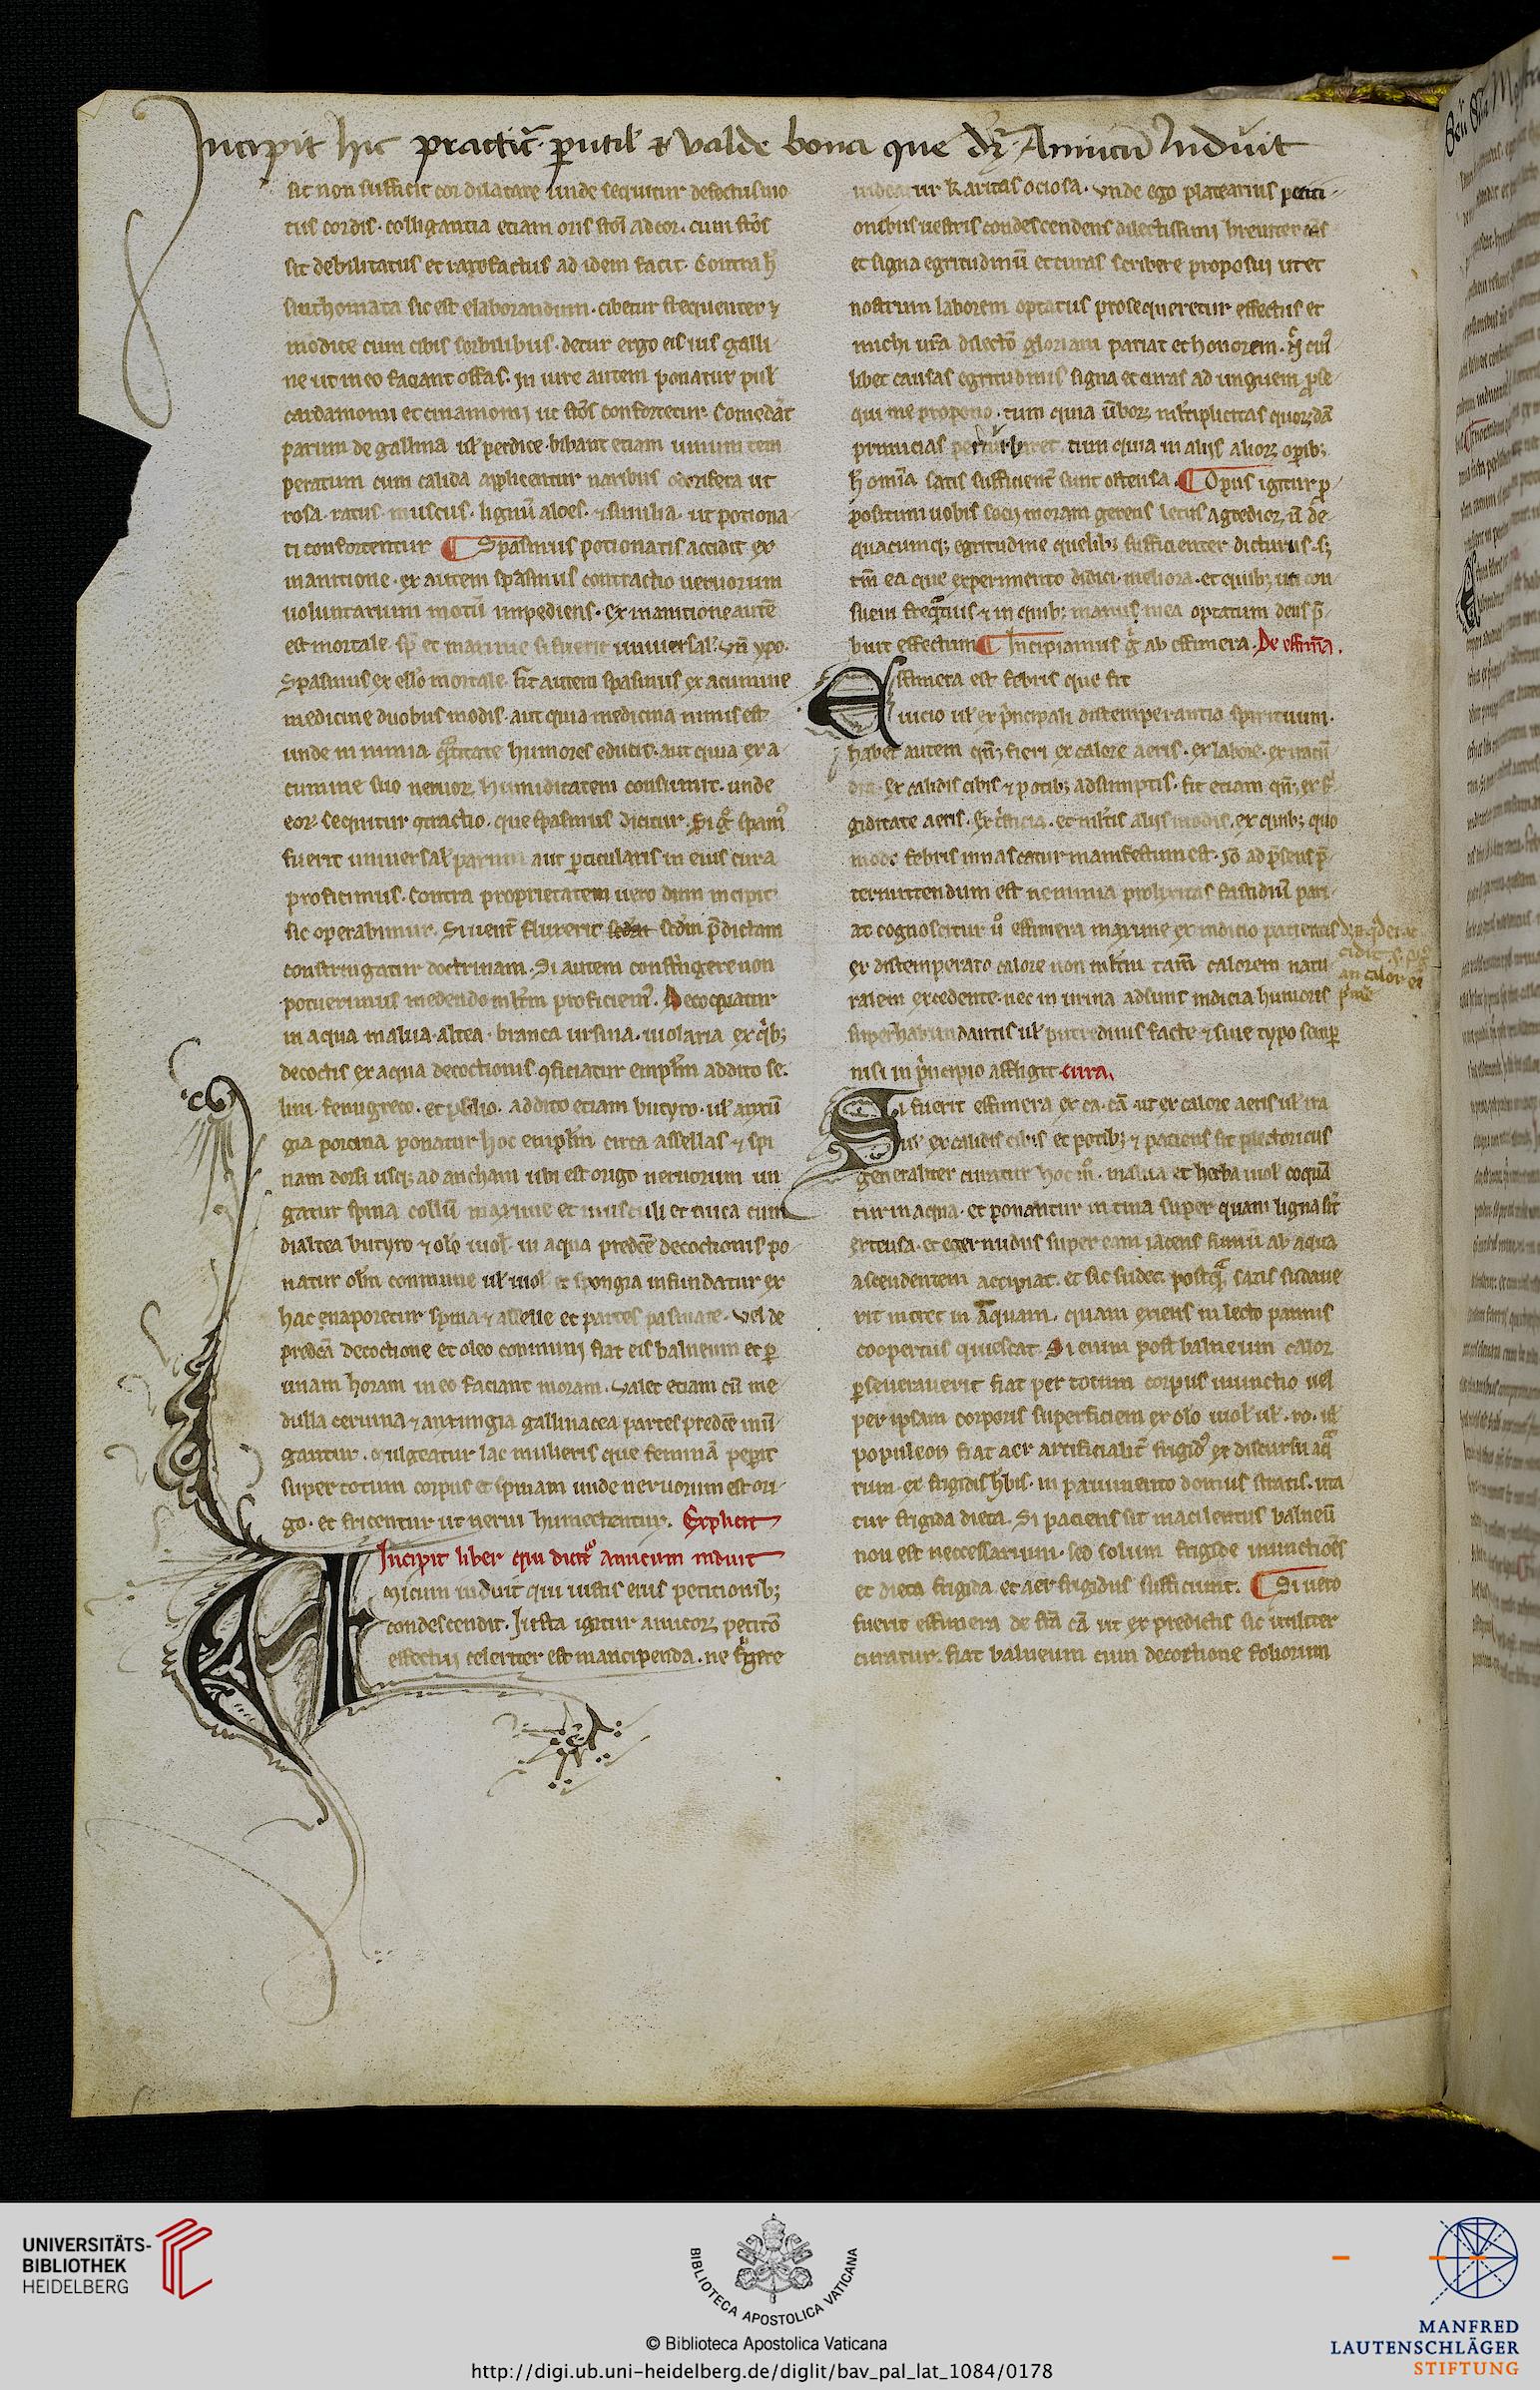 Incipit hic practic̄. ꝑutil' & valde bona que dr̄. Amicū Induit
sit non sufficit cor dilatare unde sequitur defectus mo
tus cordis. colligantia etiam oris stōi ad cor. cum stōs
sit debilitatus et rarefactus ad idem facit. Contra h̄
sinthomata sic est elaborandum. cibetur frequenter &
modice cum cibis sorbilibus. detur ergo eis ius galli
ne ut in eo faciant offas. in iure autem ponatur pul'
cardamomi et cinamomi ut stōs confortetur. Comedāt
parum de gallina ul' perdice. bibant etiam uinum tem
peratum cum calida applicentur naribus odorifera ut
rosa. muscus. lignū aloes. & similia. ut potiona
ti confortentur ¶ Spasmus potionatis accidit ex
inanitione. ex autem spasmus contractio neruorum
uoluntarium motū impediens. ex inanitione autē
est mortale. sp̄ et maxime si fuerit uniuersal'. vn̄ ypo.
Spasmus ex ell'o mortale. Fit autem spasmus ex acumine
medicine duobus modis. aut quia medicina nimis est
unde in nimia q̄titate humores educit. aut quia ex a
cumine suo neruoꝝ humiditatem consumit. unde
eoꝝ sequitur ꝯtractio. que spasmus dicitur. Si gͦ spamꝰ
fuerit uniuersal' parum aut ꝑticularis in eius cura
proficimus. Contra proprietatem uero dum incipit
sic operabimur. Si uent̄ fluxerit scđm p̄dictam
constringatur doctrinam. Si autem constringere non
potuerimus medendo mltm̄ proficiemꝰ. Decoquatur
in aqua malua. altea. branca ursina. uiolaria ex qͥbꝫ
decoctis ex aqua decoctionis ꝯficiatur emplm̄ addito se.
lini. fenugreco. et psilio. addito etiam butyro. ul' auxū
gia porcina ponatur hoc emplm̄ circa assellas & spi
nam dorsi usqꝫ ad ancham ubi est origo neruorum un
gatur spina collū maxime et musculi et nuca cum
dialtea butyro & olo uiol'. in aqua predcē decoctionis po
natur olm̄ commune ul' uiol' et spongia infundatur ex
hac euaporetur spina & asselle et partes pasmate. Vel de
predcā decoctione et oleo communi fiat eis balneum et ꝑ
unam horam in eo faciant moram. Valet etiam cū me
dulla ceruina & auxungia gallinacea partes predcē inū
gantur. mulgeatur lac mulieris que feminā peperit
super totum corpus et spinam unde neruorum est ori
go. et fricentur ut nerui humectentur. Explicit
Incipit liber qui dicit̄ amicum induit
Amicum induit qui iustis eius petitionibꝫ
condescendit. Iusta igitur amicoꝝ petitō
effectui celeriter est mancipenda. ne frigere
uideatur karitas ociosa. Vnde ego platearius petiti
onibus uestris condescendens dilectissimi breuiter cās
et signa egritudinū et curas scribere proposui ut et
nostrum laborem optatus prosequeretur effectus et
michi ur̄a dilectō gloriam pariat et honorem. nͦ cuiꝰ
libet causas egritudinis signa et curas ad unguem ꝓse
qui me propono. tum quia ūboꝝ mltiplicitas quoꝝdā
primicias perturbaret. tum quia in alijs alioꝝ opibꝫ
h̄ omīa satis sufficient̄ sunt ostensa. ¶ Opus igitur ꝓ
positum uobis socij moram gerens letus agredioꝝ n̄ de
quacumqꝫ egritudine quelibꝫ sufficienter dicturus. sꝫ
tm̄ ea que experimento didici meliora. et quibꝫ uti con
sueui freq̄tius & in quibꝫ manus mea optatum deus p̄
buit effectum ¶ Incipiamus gͦ ab effimera. De effim̄a.
Effimera est febris que fit
uicio ul' ex p̄ncipali distemperantia spirituum.
habet autem qn̄qꝫ fieri ex calore aeris. ex labore. ex iracū
dia. ex calidis cibis & potibꝫ adsumptis. fit etiam qn̄qꝫ ex fͥ
giditate aeris. et mltis alijs modis. ex quibꝫ quo
modo febris innascatur manifestum est. sꝫ ad p̄sens p̄
termittendum est ne nimia prolixitas fastidiū pari
at cognoscitur ū effimera maxime ex indicio patientis
ex distemperato calore non mltm̄ tam̄ calorem natu
ralem excedente. nec in urina adsunt indicia humoris
superhabundantis ul' putredinis facte & sine typo semꝑ
nisi in p̄ncipio affligit. cura.
Si fuerit effimera ex ca. cā. ut ex calore aeris ul' ira
siue ex calidis cibis et potibꝫ & paciens sit plectoricus
generaliter curatur hoc mͦ. malua et herba uiol' coquā
tur in aqua. et ponantur in tina super quam ligna sīt
extensa. et eger nudus super eam iacens fumū ab aqua
ascendentem accipiat. et sic sudet. postq̄ satis sudaue
rit intret in aquam. quam exiens in lecto pannis
coopertus quiescat. Si enim post balneum calor
ꝑseuerauerit fiat per totum corpus inunctio uel
per ipsam corporis superficiem ex olo uiol' ul'. ro. ul'
populeon fiat aer artificialit̄ frigidꝰ ex discursu aq̄
rum. ex frigidis h̄bis. in pauimento domus stratis. uta
tur frigida dieta. Si paciens sit macilentus balneū
non est neccessarium. sed solum frigide inunctiōes
et dieta frigida. et aer frigidus sufficiunt. ¶ Si uero
fuerit effimera de fͣ cā ut ex predictis sic utiliter
curatur. fiat balneum cum decoctione foliorum
UNIVERSITÄTS-
BIBLIOTHEK
HEIDELBERG
BIBLIOTECA APOSTOLICA VATICANA
© Biblioteca Apostolica Vaticana
http://digi.ub.uni-heidelberg.de/diglit/bav_pal_lat_1084/0178
MANFRED
LAUTENSCHLÄGER
STIFTUNG